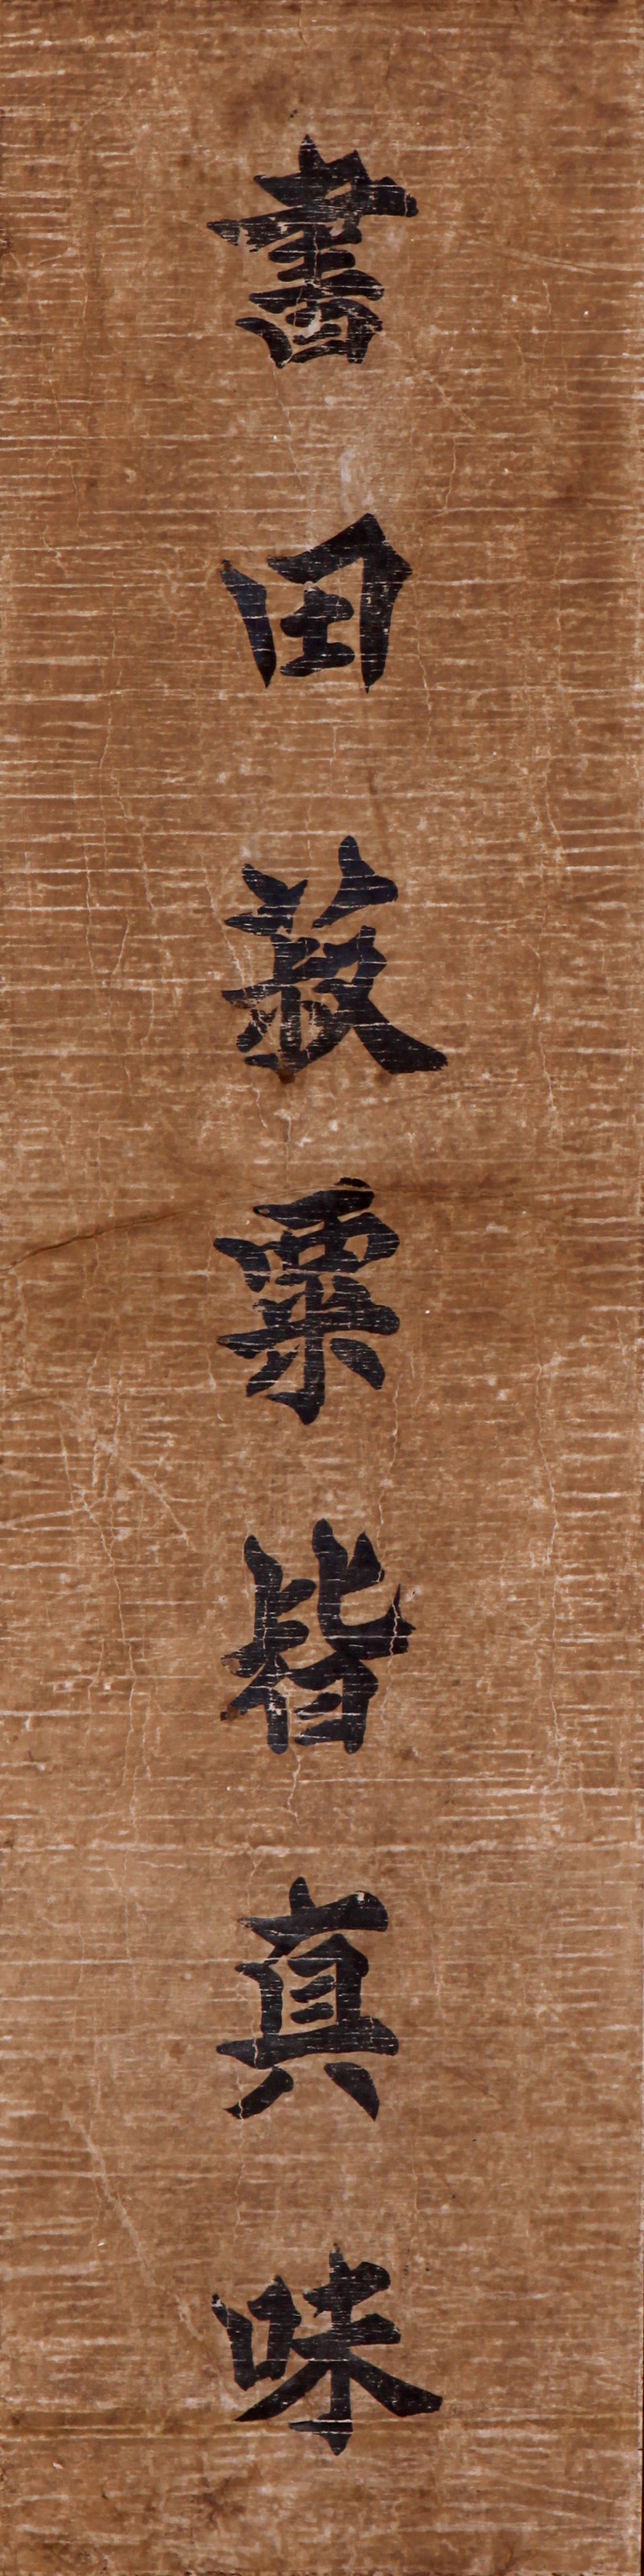 書田菽粟皆真味